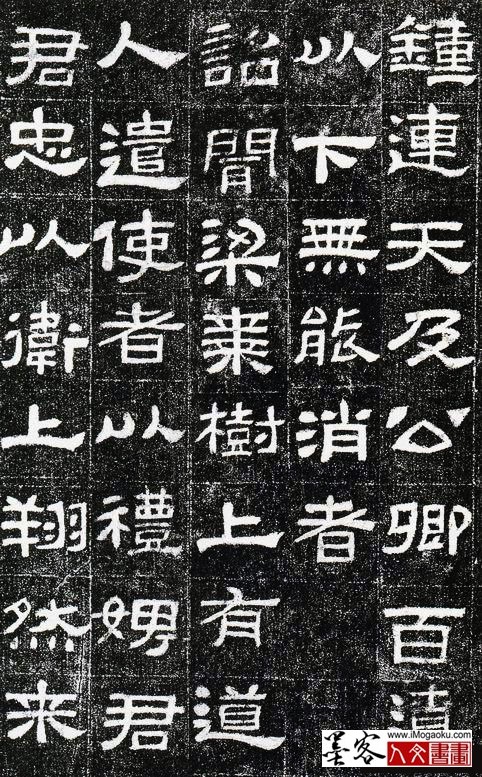 鍾連天及公卿百
以下無能消者
詔聞梁棗樹上有道
人遣使者以禮娉君
君忠以衛上翔然来
墨客
www.iMogaoku.com
人文書畫